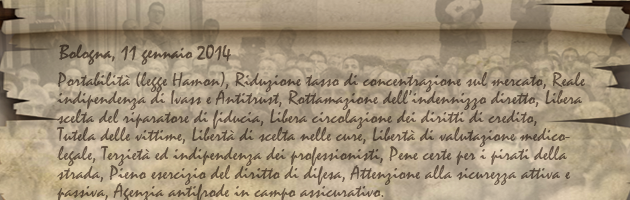 Bologna, 11 gennaio 2014
Portabilità (legge Hamon), Riduzione tasso di concentrazione sul mercato, Reale
indipendenza di Ivass e Antitrust, Rottamazione dell'indennizzo diretto, Libera
scelta del riparatore di fiducia, Libera circolazione dei diritti di credito,
Tutela delle vittime, Libertà di scelta nelle cure, Libertà di valutazione medico-
legale, Terzietà ed indipendenza dei professionisti, Pene certe per i pirati della
strada, Pieno esercizio del diritto di difesa, Attenzione alla sicurezza attiva e
passiva, Agenzia antifrode in campo assicurativo.